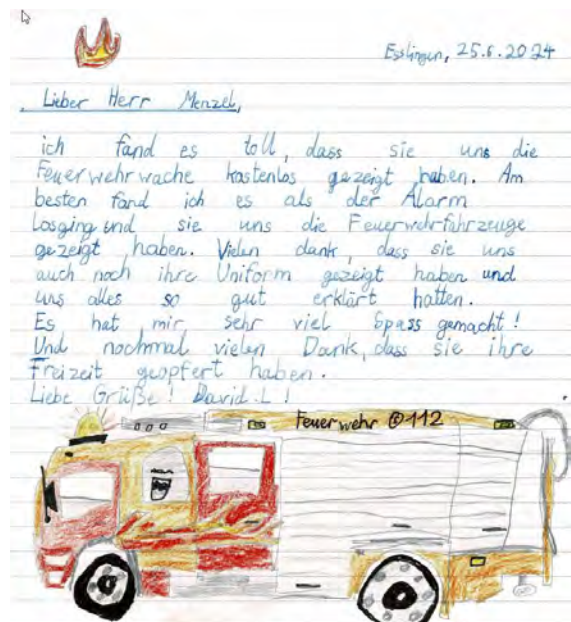 Esslingen, 25.6.2024
Lieber Herr Menzel,
ich fand es toll, dass sie uns die
Feuerwehrwache kostenlos gezeigt haben. Am
besten fand ich es als der Alarm
losging und sie uns die Feuerwehrfahrzeuge
gezeigt haben. Vielen dank, dass sie uns
auch noch ihre Uniform gezeigt haben und
uns alles so gut erklärt hatten.
Es hat mir sehr viel Spass gemacht!
Und nochmal vielen Dank, dass sie ihre
Freizeit geopfert haben.
Liebe Grüße! David.L!
Feuerwehr 112